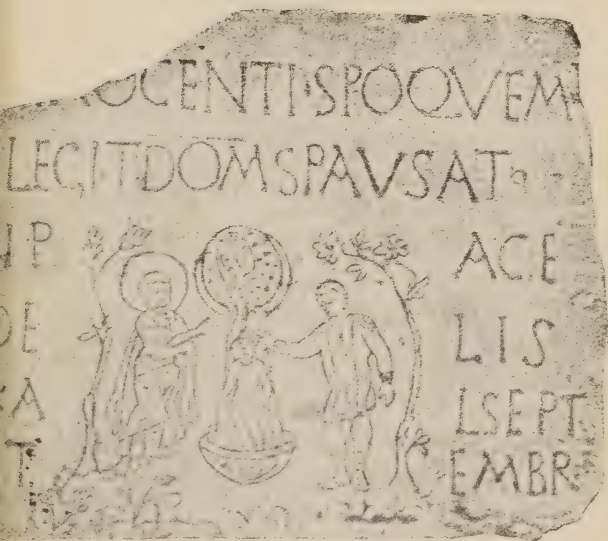 OCENTI·SPOQVEM
LEGIT·DOMSPAVSAT
IP ACE
DE LIS
A LSEPT
T EMBR